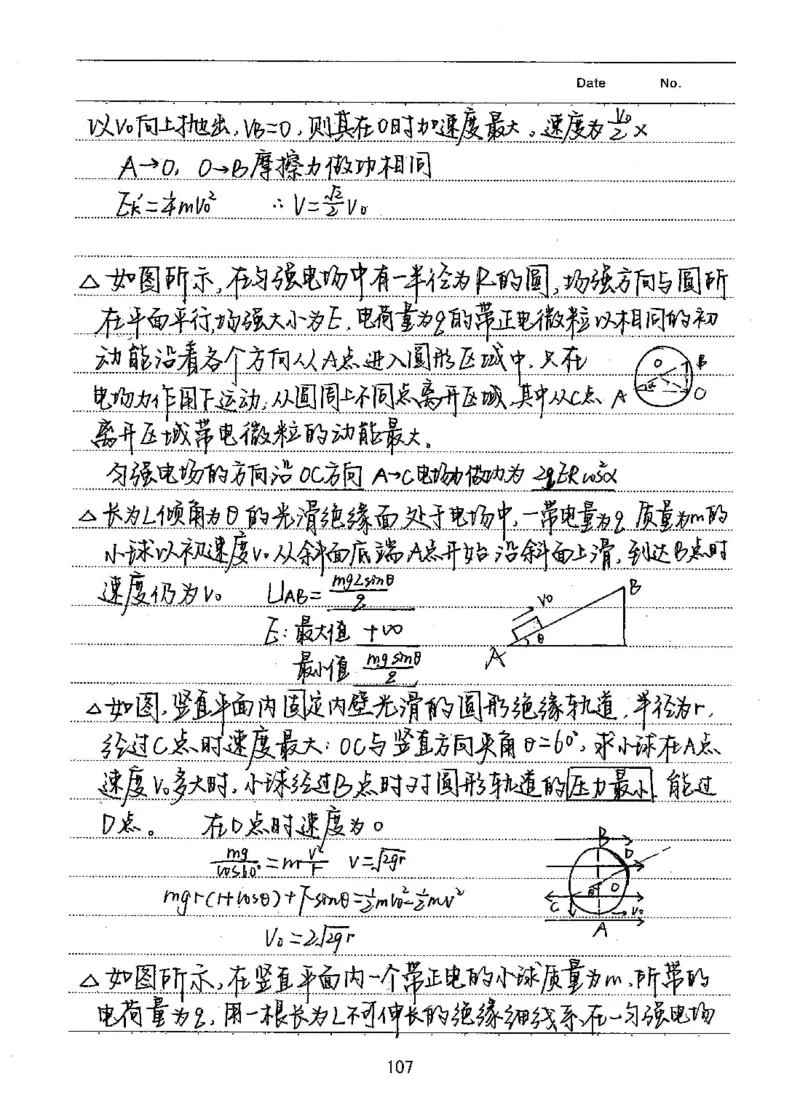 Date No.
以V₀向上抛出,VB=0,则其在O时加速度最大。速度为V₀/2 ×
A→O, O→B摩擦力做功相同
Ek'=¼mV₀² ∴V=√2/2 V₀
△如图所示,在匀强电场中有一半径为R的圆,场强方向与圆所
在平面平行,场强大小为E,电荷量为q的带正电微粒以相同的初
动能沿着各个方向从A点进入圆形区域中,只在
电场力作用下运动,从圆周上不同点离开区域,其中从C点
离开区域带电微粒的动能最大。
O B A α
匀强电场的方向沿OC方向 A→C电场力做功为 2qERcos²α
△长为L倾角为θ的光滑绝缘面处于电场中,一带电量为q质量为m的
小球以初速度V₀从斜面底端A点开始沿斜面上滑,到达B点时
速度仍为V₀ UAB=mgLsinθ/q
E:最大值 +∞
最小值 mgsinθ/q
V₀ B θ A
△如图,竖直平面内固定内壁光滑的圆形绝缘轨道,半径为r,
经过C点时速度最大:OC与竖直方向夹角θ=60°,求小球在A点
速度V₀多大时,小球经过B点时对圆形轨道的压力最小 能过
D点。 在D点时速度为0
mg/cos60°=mv²/r V=√2gr
mgr(1+cosθ)+F·sinθ=½mV₀²-½mv²
V₀=2√2gr
B D θ O C V₀ A
△如图所示,在竖直平面内一个带正电的小球质量为m,所带的
电荷量为q,用一根长为L不可伸长的绝缘细线系在一匀强电场
107